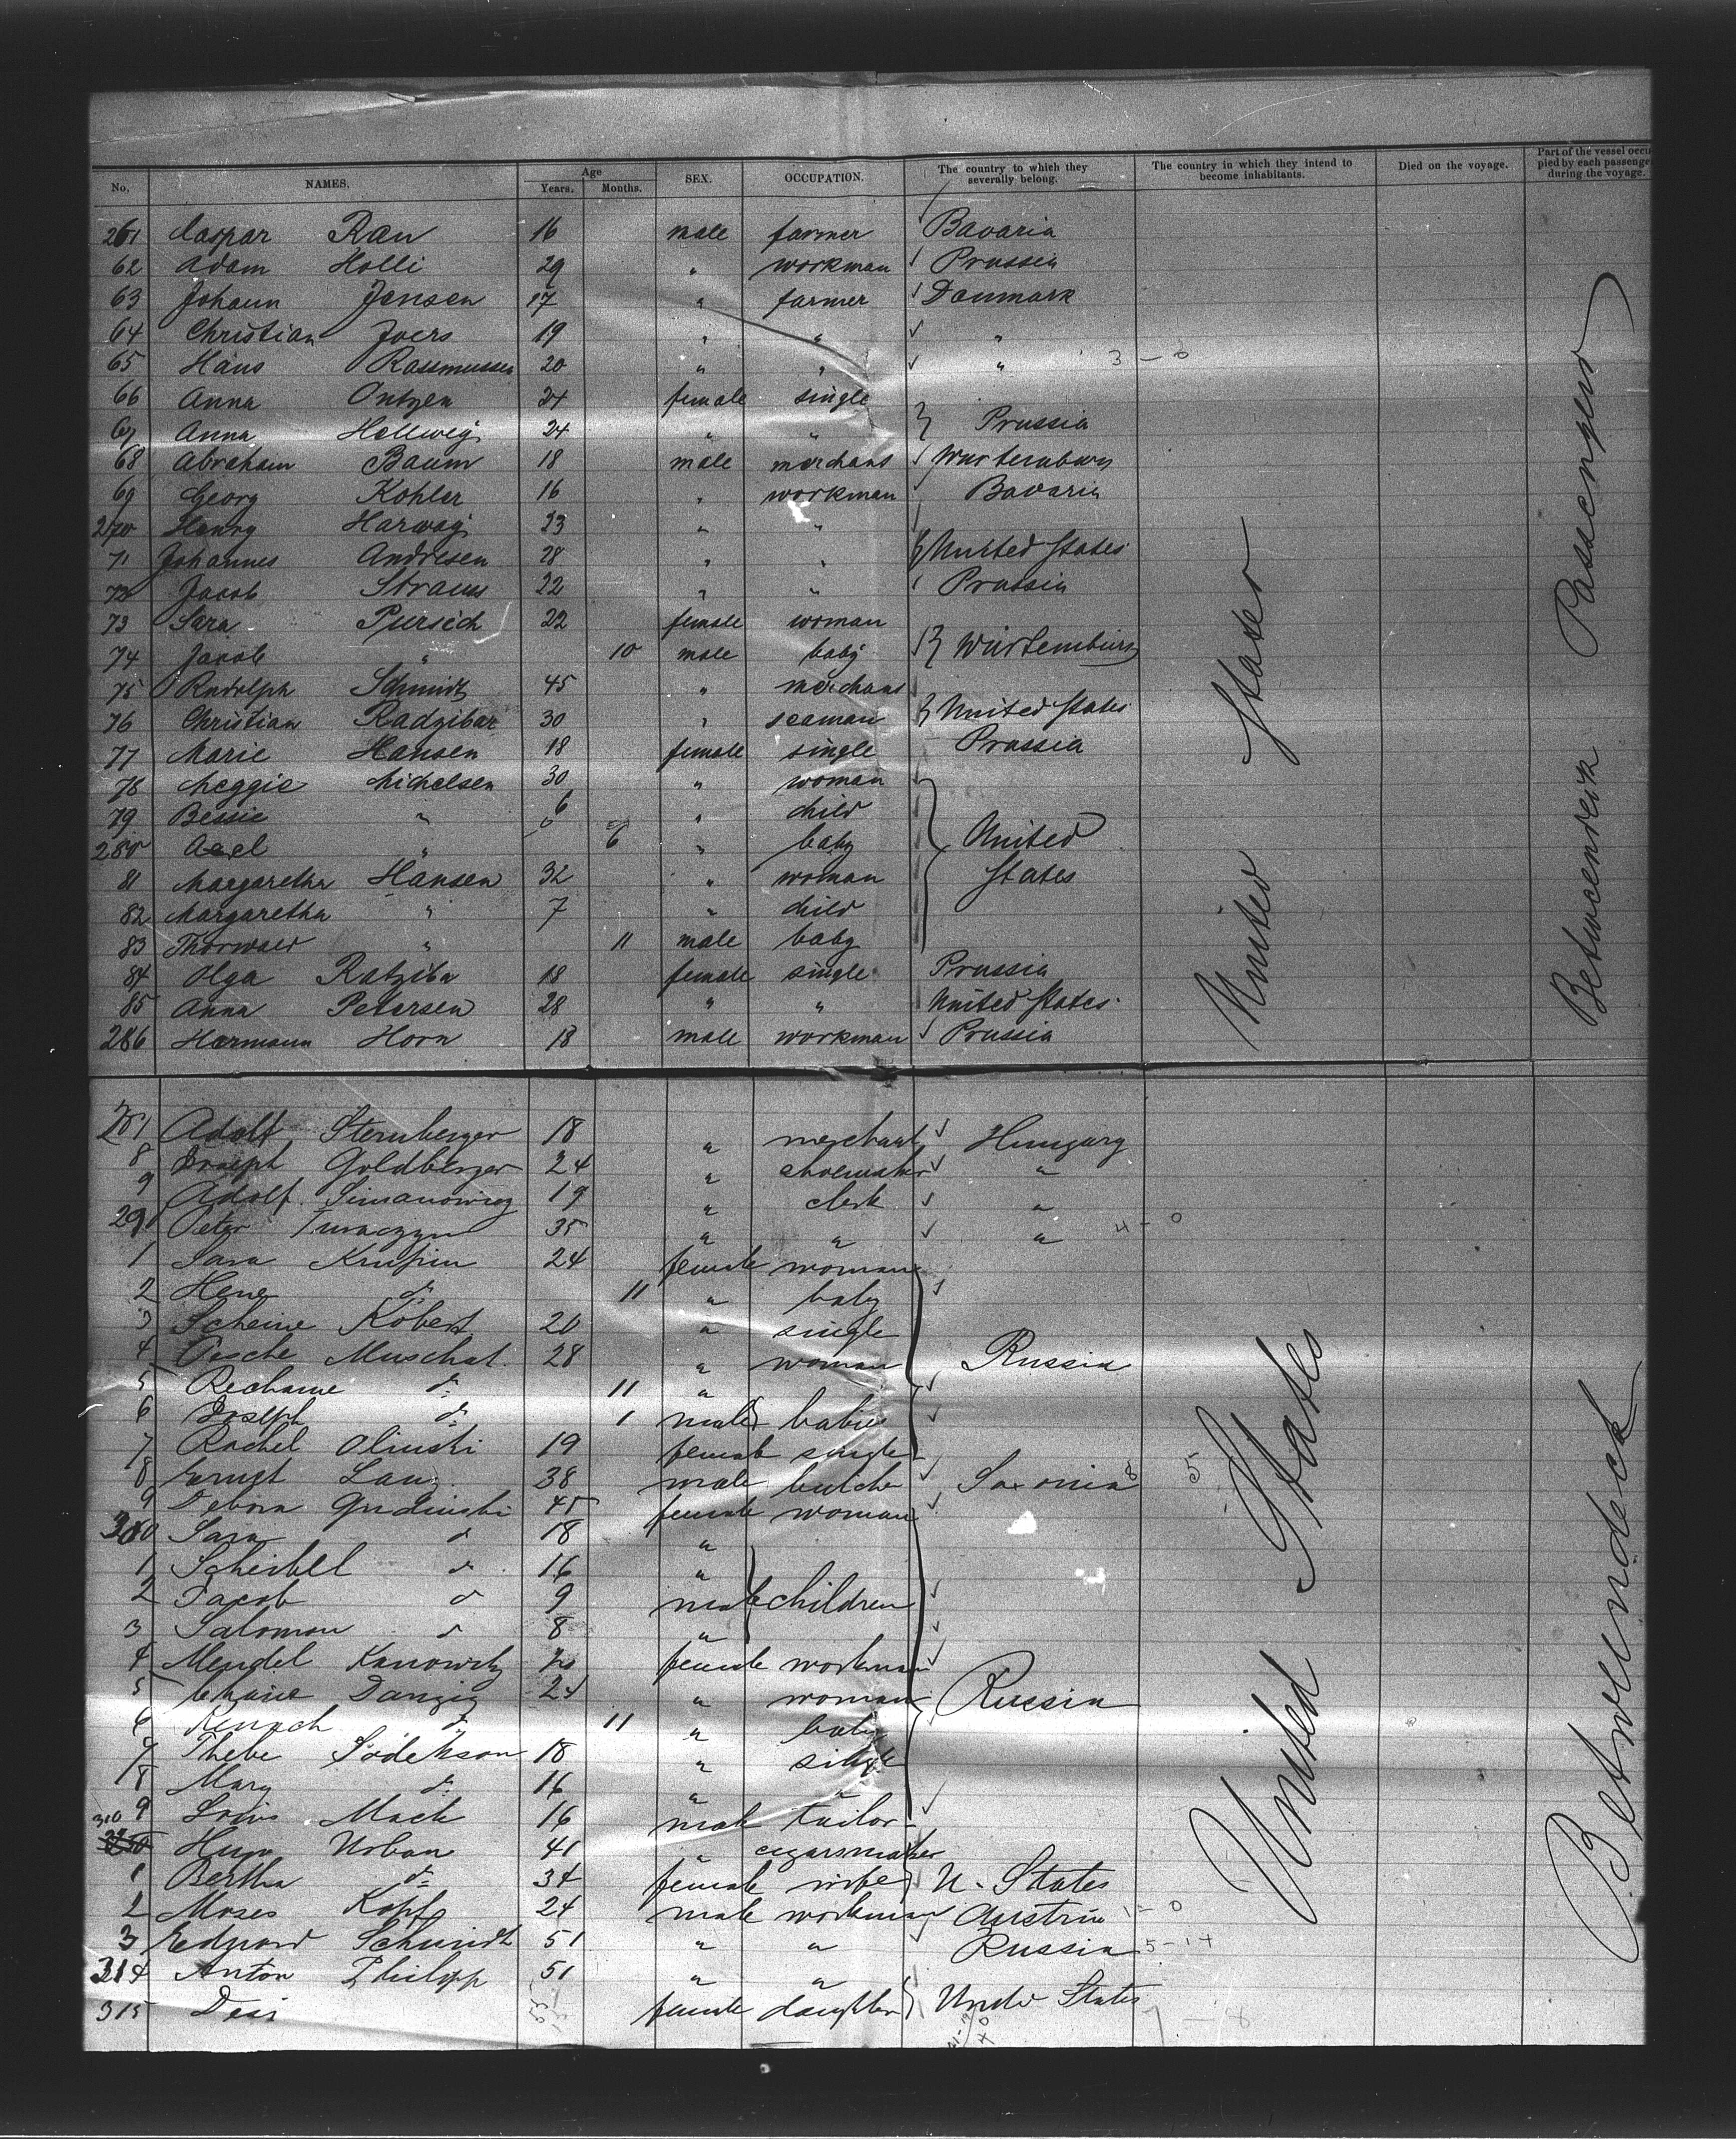 No. NAMES. Age Years. Months. SEX. OCCUPATION. The country to which they severally belong. The country in which they intend to become inhabitants. Died on the voyage. Part of the vessel occupied by each passenger during the voyage.
261 Caspar Rau 16 male farmer Bavaria
62 Adam Holli 29 " workman Prussia
63 Johann Jensen 17 " farmer Danmark
64 Christian Joers 19 " " "
65 Hans Rassmussen 20 " " " 3 - 0
66 Anna Ontzen 24 female single
67 Anna Hellweg 24 " " Prussia
68 Abraham Baum 18 male merchant Wurtemburg
69 Georg Kohler 16 " workman Bavaria
270 Henry Harwag 23 " "
71 Johannes Andresen 28 " " United States
72 Jacob Strauss 22 " " Prussia
73 Sara Pursich 22 female woman
74 Jacob " 10 male baby Würtemburg
75 Rudolph Schmidt 45 " merchant
76 Christian Radzibar 30 " seaman United States
77 Marie Hansen 18 female single Prussia
78 Meggie Michelsen 30 " woman
79 Bessie " 6 " child
280 Axel " 6 " baby United
81 Margaretha Hansen 32 " woman States
82 Margaretha " 7 " child
83 Thorwald " 11 male baby
84 Olga Ratziba 18 female single Prussia
85 Anna Petersen 28 " " United States
286 Hermann Horn 18 male workman Prussia
United States
Betweendeck Passengers
287 Adolf Sternberger 18 " merchant Hungary
8 Joseph Goldberger 24 " shoemaker "
9 Adolf Simanowicz 19 " clerk "
290 Peter 35 " " " 4 - 0
1 Sara Krupin 24 female woman
2 Hene do 11 " baby
3 Scheine Kobert 20 " single
4 Pesche Muschat 28 " woman Russia
5 Rechame do 11 "
6 Joseph do 1 male babies
7 Rachel Olinski 19 female single
8 Ernst Lang 38 male butcher Saxonia
9 Debora Grudinski 45 female woman
300 Sara do 18 "
1 Scheibel do 16 "
2 Jacob do 9 male children
3 Salomon do 8 "
4 Mendel Kanowitz 20 female workman
5 Chaie Danzig 24 " woman Russia
6 do 11 " baby
7 Thebe 18 " single
8 Mary do 16 " "
9 Louis Mack 16 male tailor
310 Hugo Urban 41 " cigarsmaker
1 Bertha do 34 female wife U. States
2 Moses Kopf 24 male workman Austria 1 - 0
3 Eduard Schmidt 51 " " Russia 5 - 14
314 Anton Philipp 51 " "
315 female daughter United States
7 - 8
United States
Betweendeck